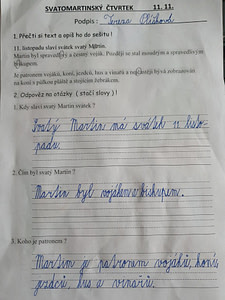 SVATOMARTINSKÝ ČTVRTEK 11. 11.
Podpis : Tereza
1. Přečti si text a opiš ho do sešitu !
11. listopadu slaví svátek svatý Martin.
Martin byl spravedlivý a čestný voják. Později se stal moudrým a spravedlivým
biskupem.
Je patronem vojáků, koní, jezdců, hus a vinařů a nejčastěji bývá zobrazován
na koni s půlkou pláště a stejným žebrákem.
2. Odpověz na otázky ( stačí slovy ) !
1. Kdy slaví svatý Martin svátek ?
Svatý Martin má svátek 11 listo-
padu.
2. Čím byl svatý Martin ?
Martin byl vojákem a biskupem.
3. Koho je patronem ?
Martin je patronem vojáků, koní,
jezdců, hus a vinařů.